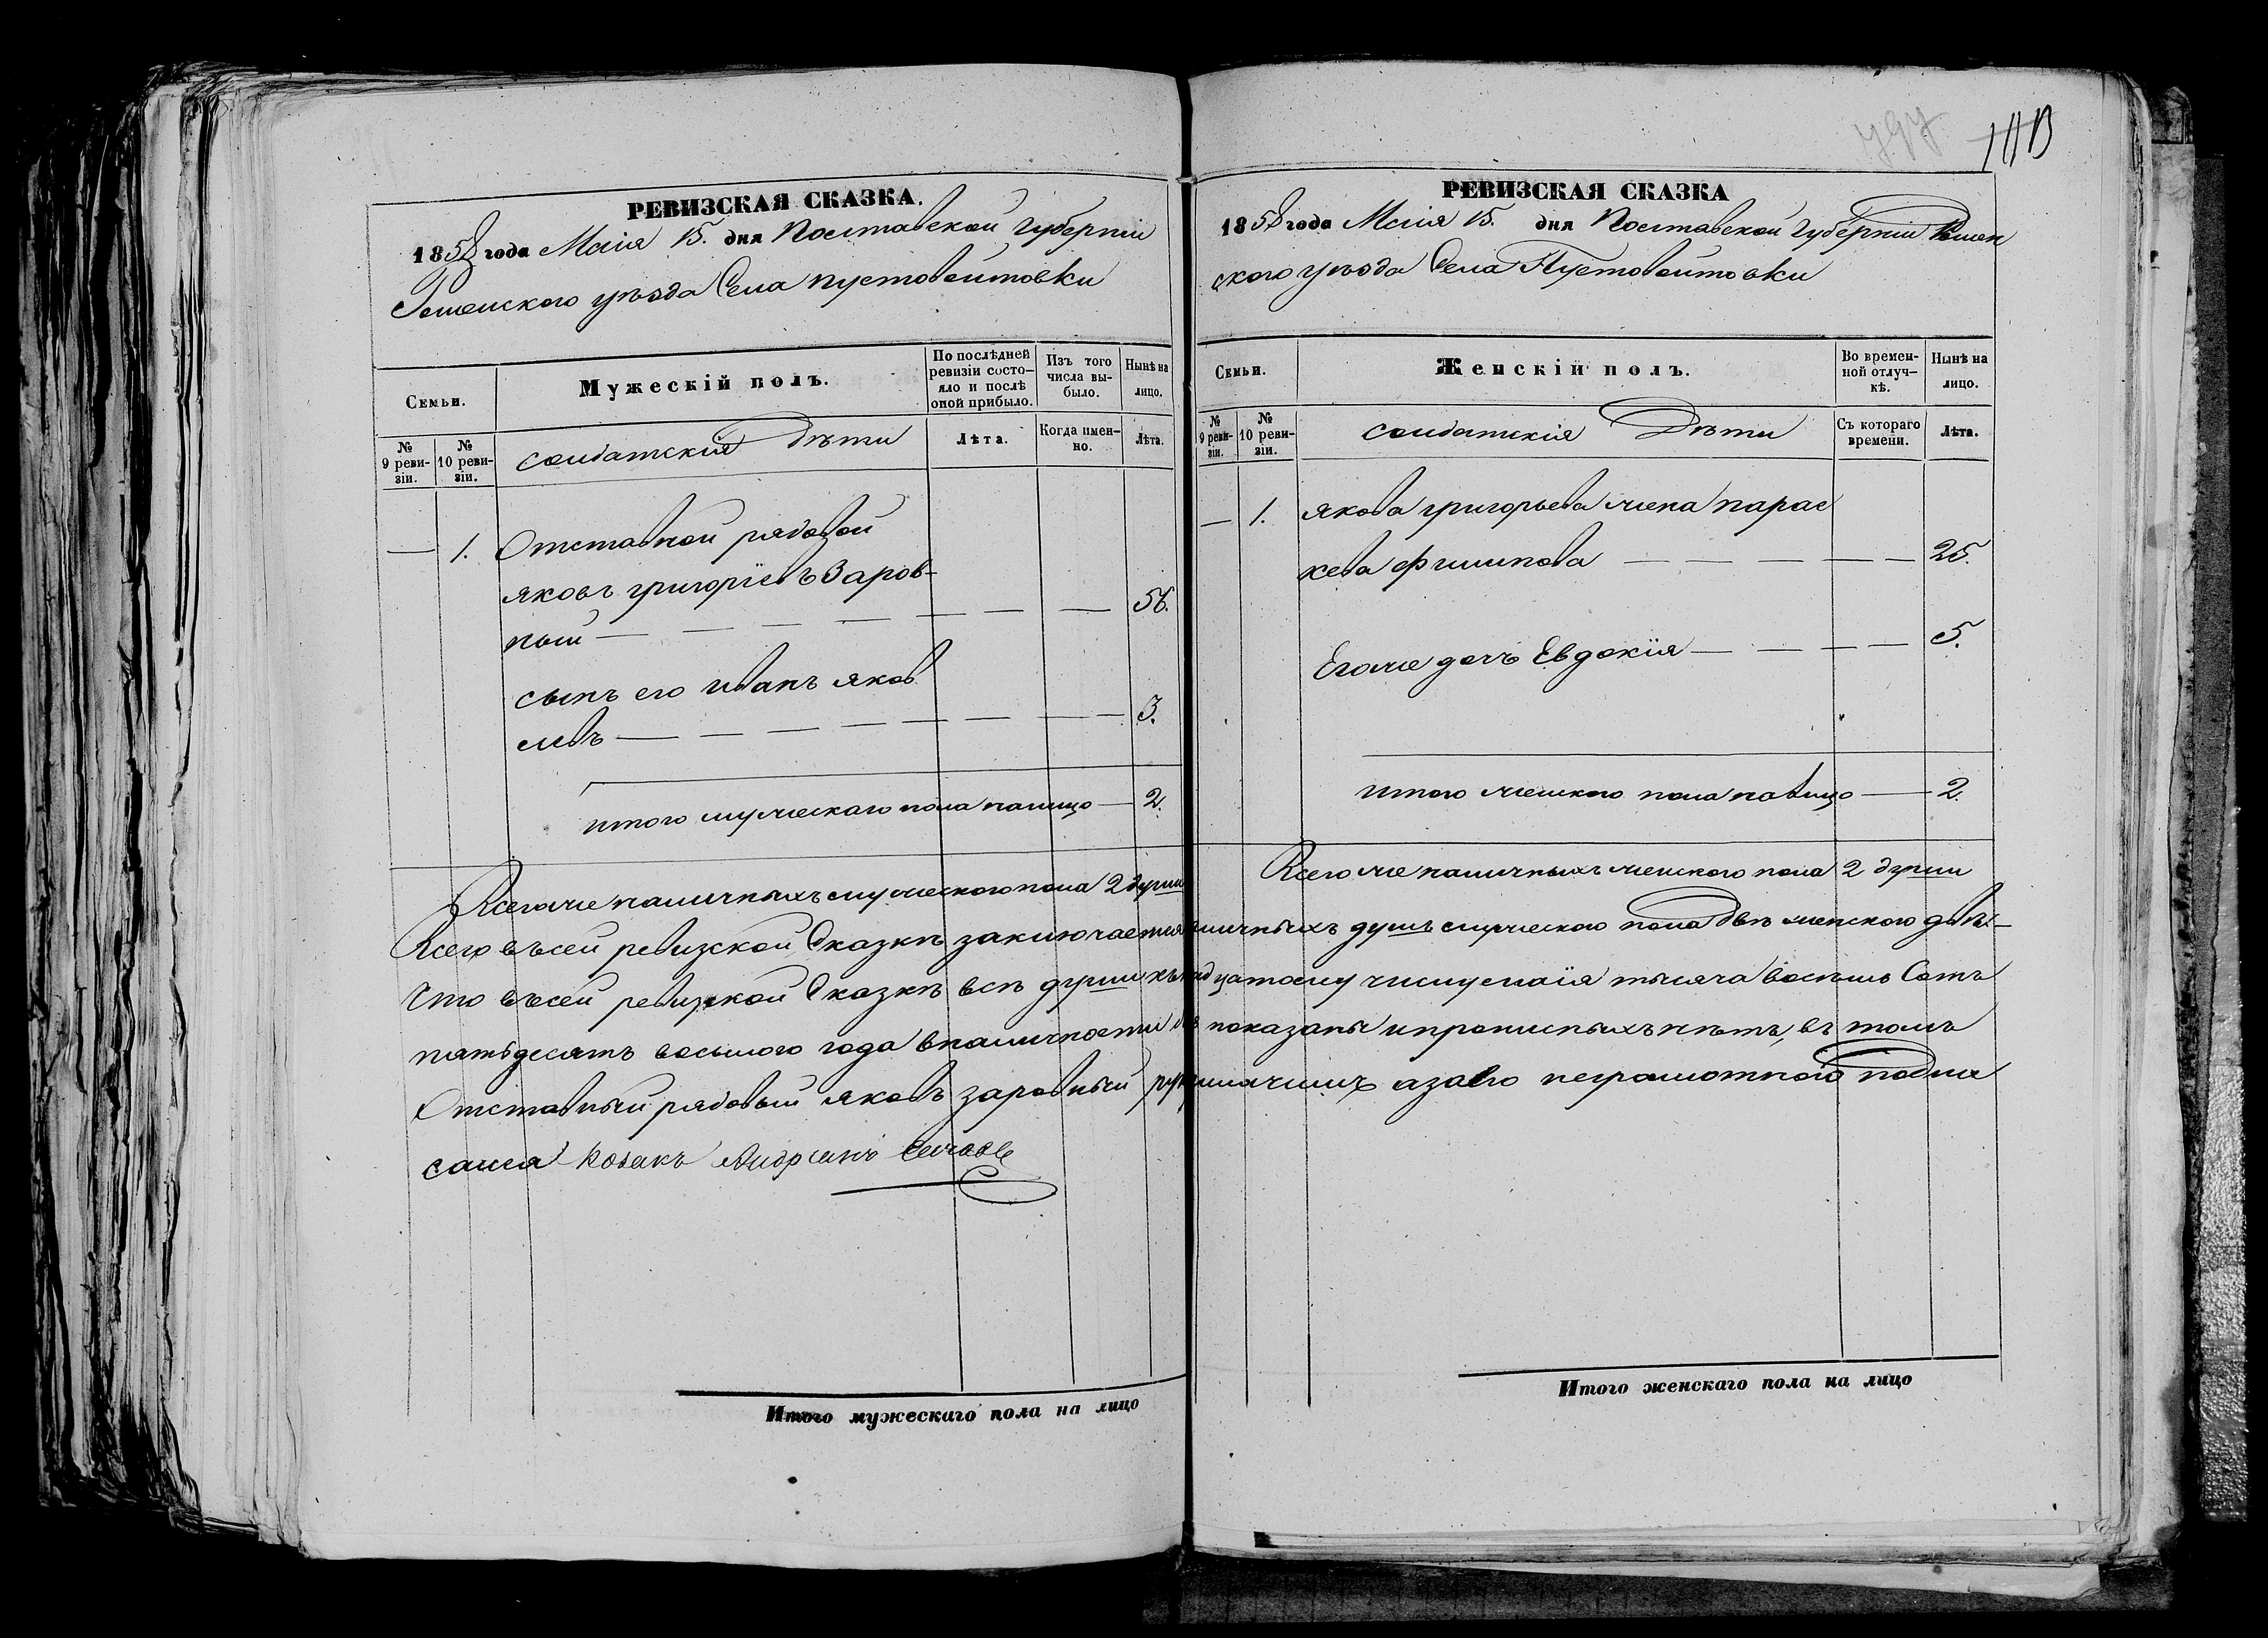 РЕВИЗСКАЯ СКАЗКА.
1858 года Маія 15. дня Полтавской губерніи
Роменского уѣзда Села пустовойтовки
Семьи.
Мужескій полъ.
По послѣдней ревизіи состо-
яло и послѣ оной прибыло.
Изъ того числа вы-
было.
Нынѣ на лицо.
№ 9 реви-
зіи.
№ 10 реви-
зіи.
солдатскія Дѣти
Лѣта.
Когда имен-
но.
Лѣта.
— 1. Отставной рядовой
яковъ григоріевъ Заров-
ный — — — — — — — 56.
сынъ его иванъ яков
левъ — — — — — — — 3.
итого мужескаго пола налицо — 2.
Всегоже наличныхъ мужеского пола 2 души
РЕВИЗСКАЯ СКАЗКА
1858 года Маія 15. дня Полтавской Губерніи Ромен
ского уѣзда Села Пустовойтовки
Семьи.
Женскій полъ.
Во времен-
ной отлуч-
кѣ.
Нынѣ на лицо.
№ 9 реви-
зіи.
№ 10 реви-
зіи.
солдатскія Дѣти
Съ котораго времени.
Лѣта.
— 1. якова григорьева жена парас
кева филипова — — — — — 25.
Егоже дочь Евдокія — — — — 5.
итого женского пола налицо — 2.
Всего же наличныхъ женского пола 2 души
Всего въсей ревизской Сказкѣ заключается наличныхъ душъ мужеского пола двѣ женского двѣ—
Что въсей ревизской Сказкѣ всѣ души къ цатому числу маія тысяча восемь Сотъ
пятьдесятъ восьмого года вналичности показаны ипрописныхъ нѣтъ, въ томъ
Отставный рядовый яковъ заровный азаего неграмотного подпи
сался козакъ Андріанъ
Итого мужескаго пола на лицо
Итого женскаго пола на лицо